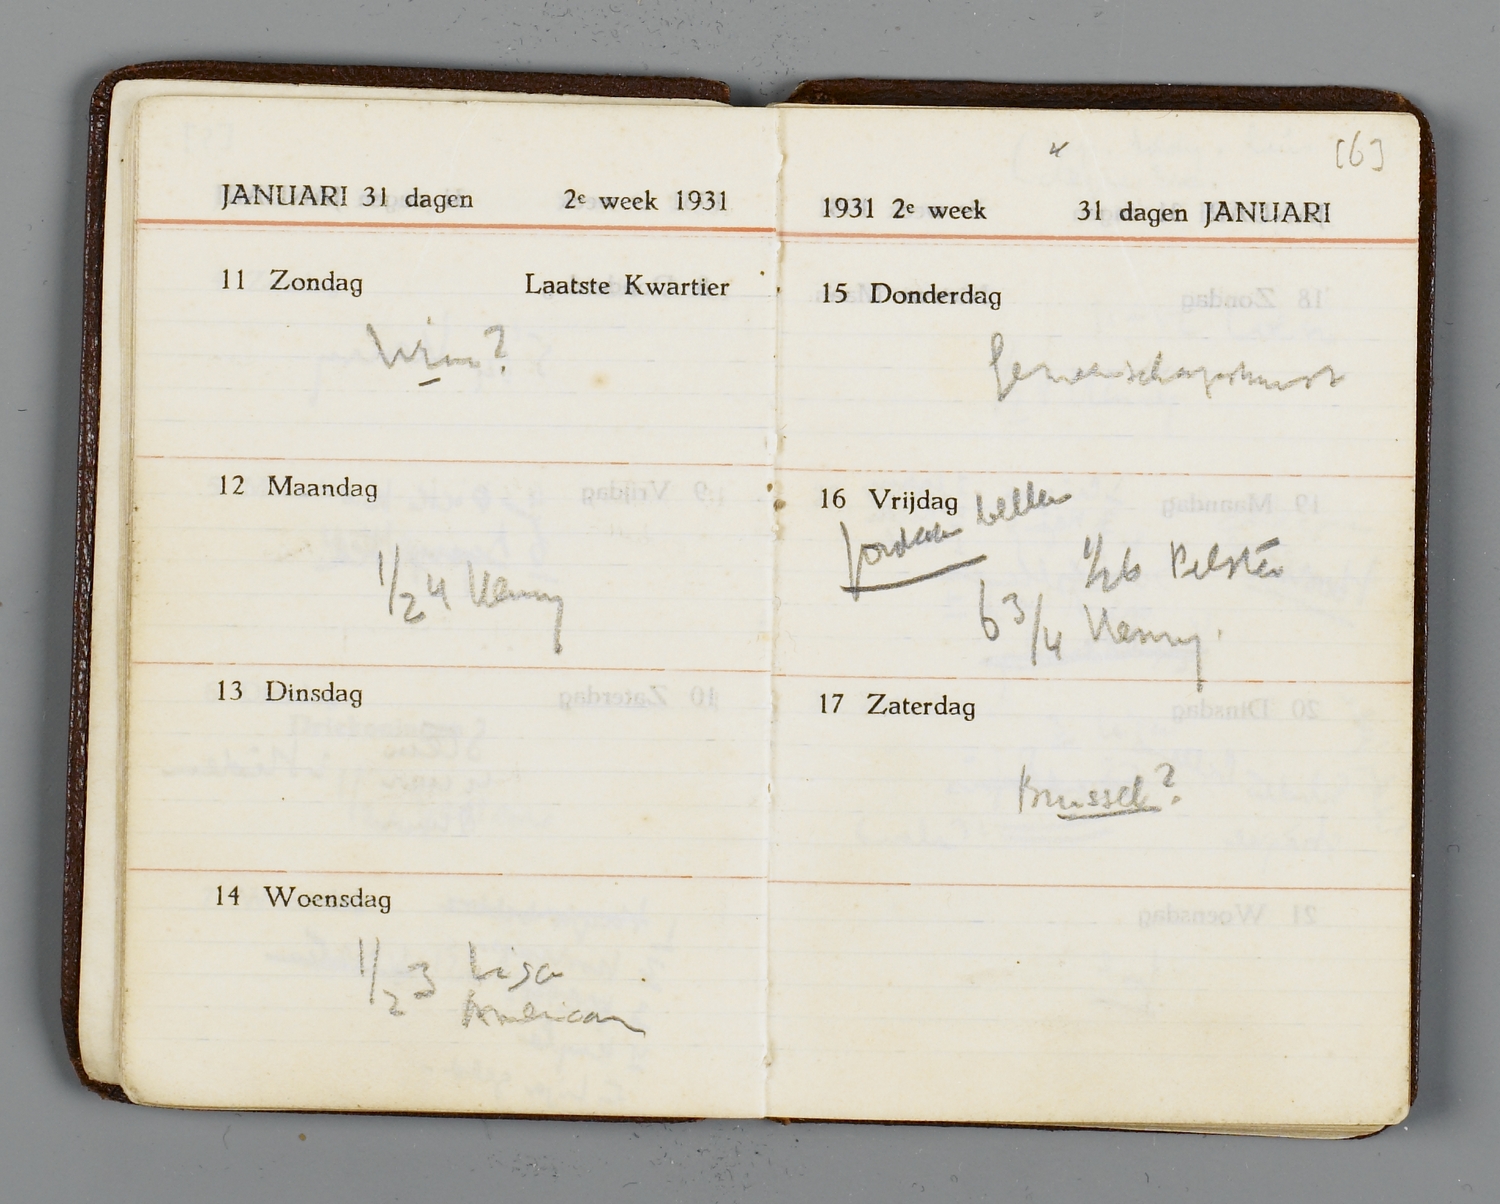 JANUARI 31 dagen 2e week 1931
11 Zondag Laatste Kwartier
Wim?
12 Maandag
1/2 4 Henny
13 Dinsdag
14 Woensdag
1/2 3 Lisa
American
[6]
1931 2e week 31 dagen JANUARI
15 Donderdag
Gemeenschapskunst
16 Vrijdag bellen
Jordaan
1/2 6
6 3/4 Henny.
17 Zaterdag
Brussel?